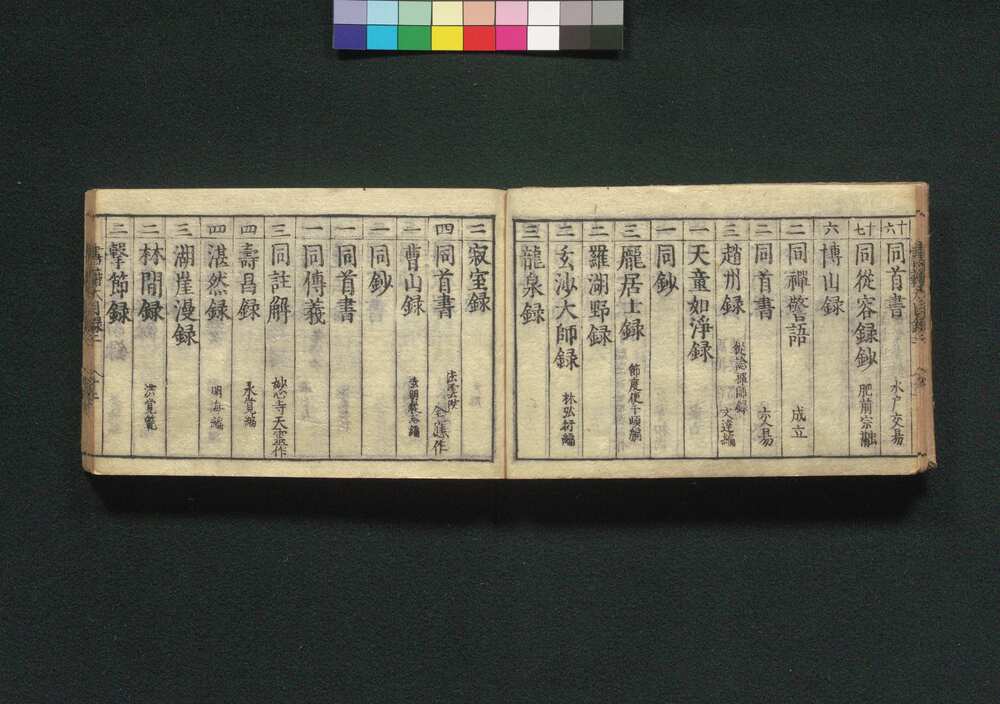 十六 同首書 水戸交易
十七 同從容録鈔 肥前宗
六 博山録
二 同禅警語 成立
二 同首書 交易
三 趙州録 從諗禪師録 文遠編
一 天童如淨録
一 同鈔
三 龐居士録 節度使于頔編
二 羅湖野録
二 玄沙大師録 林弘衍編
三 龍泉録
二 寂室録
四 同首書
二 曹山録
一 同鈔
一 同首書
一 同傳義
三 同註解 妙心寺天霊作
四 壽昌録 永覚編
四 湛然録 明海編
三 湖崖漫録
二 林間録
二 撃節録